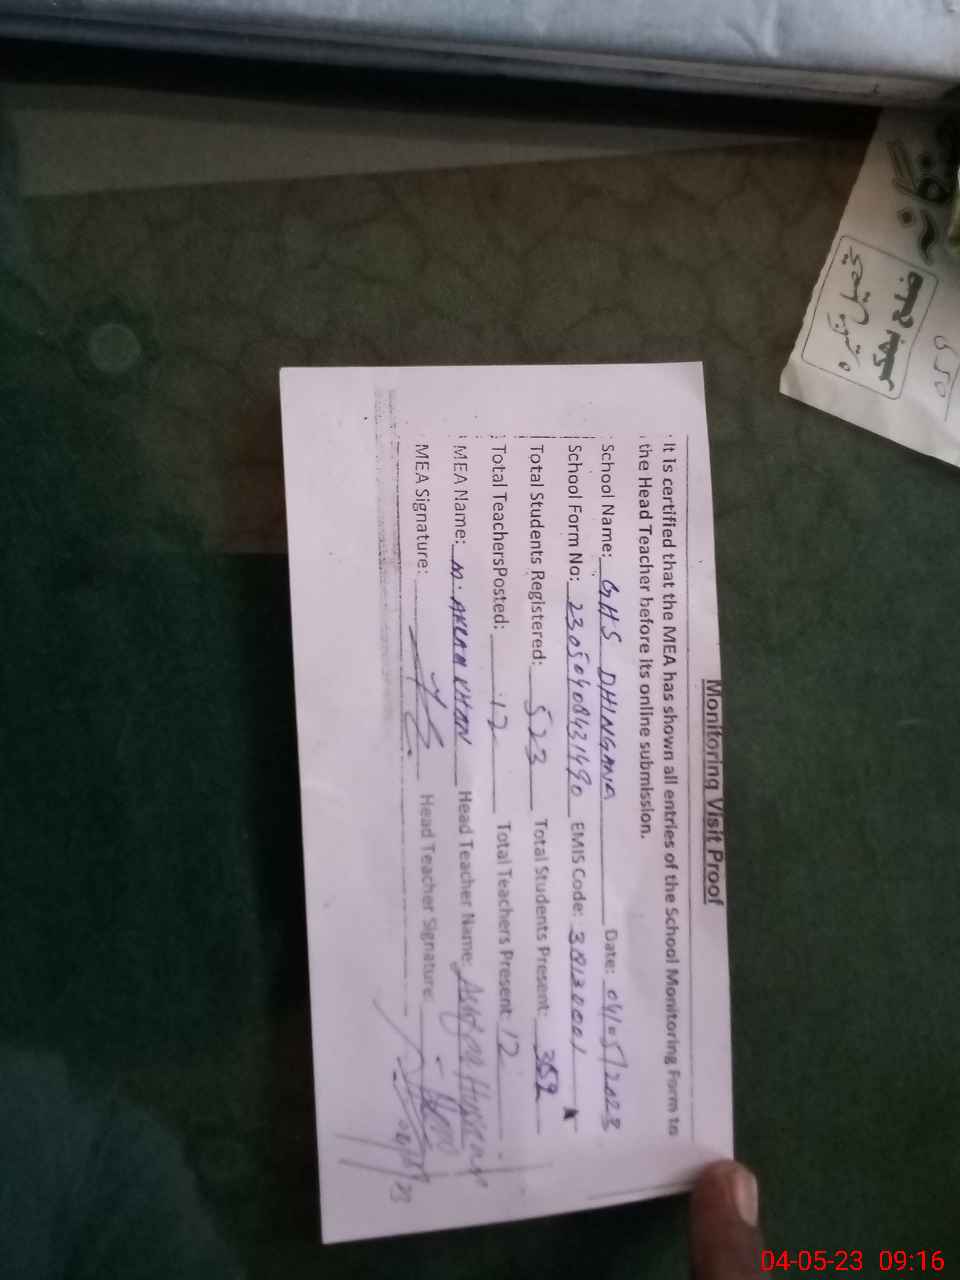 Monitoring Visit Proof
It Is certified that the MEA has shown all entries of the School Monitoring Form to
the Head Teacher before its online submission.
School Name: GHS DHINGANA Date: 04/05/2023
School Form No: 23050408421490 EMIS Code: 38130001
Total Students Registered: 523 Total Students Present: 352
Total TeachersPosted: 12 Total Teachers Present: 12
MEA Name: M. AKRAM KHAN Head Teacher Name:
MEA Signature: Head Teacher Signature:
550
04-05-23 09:16